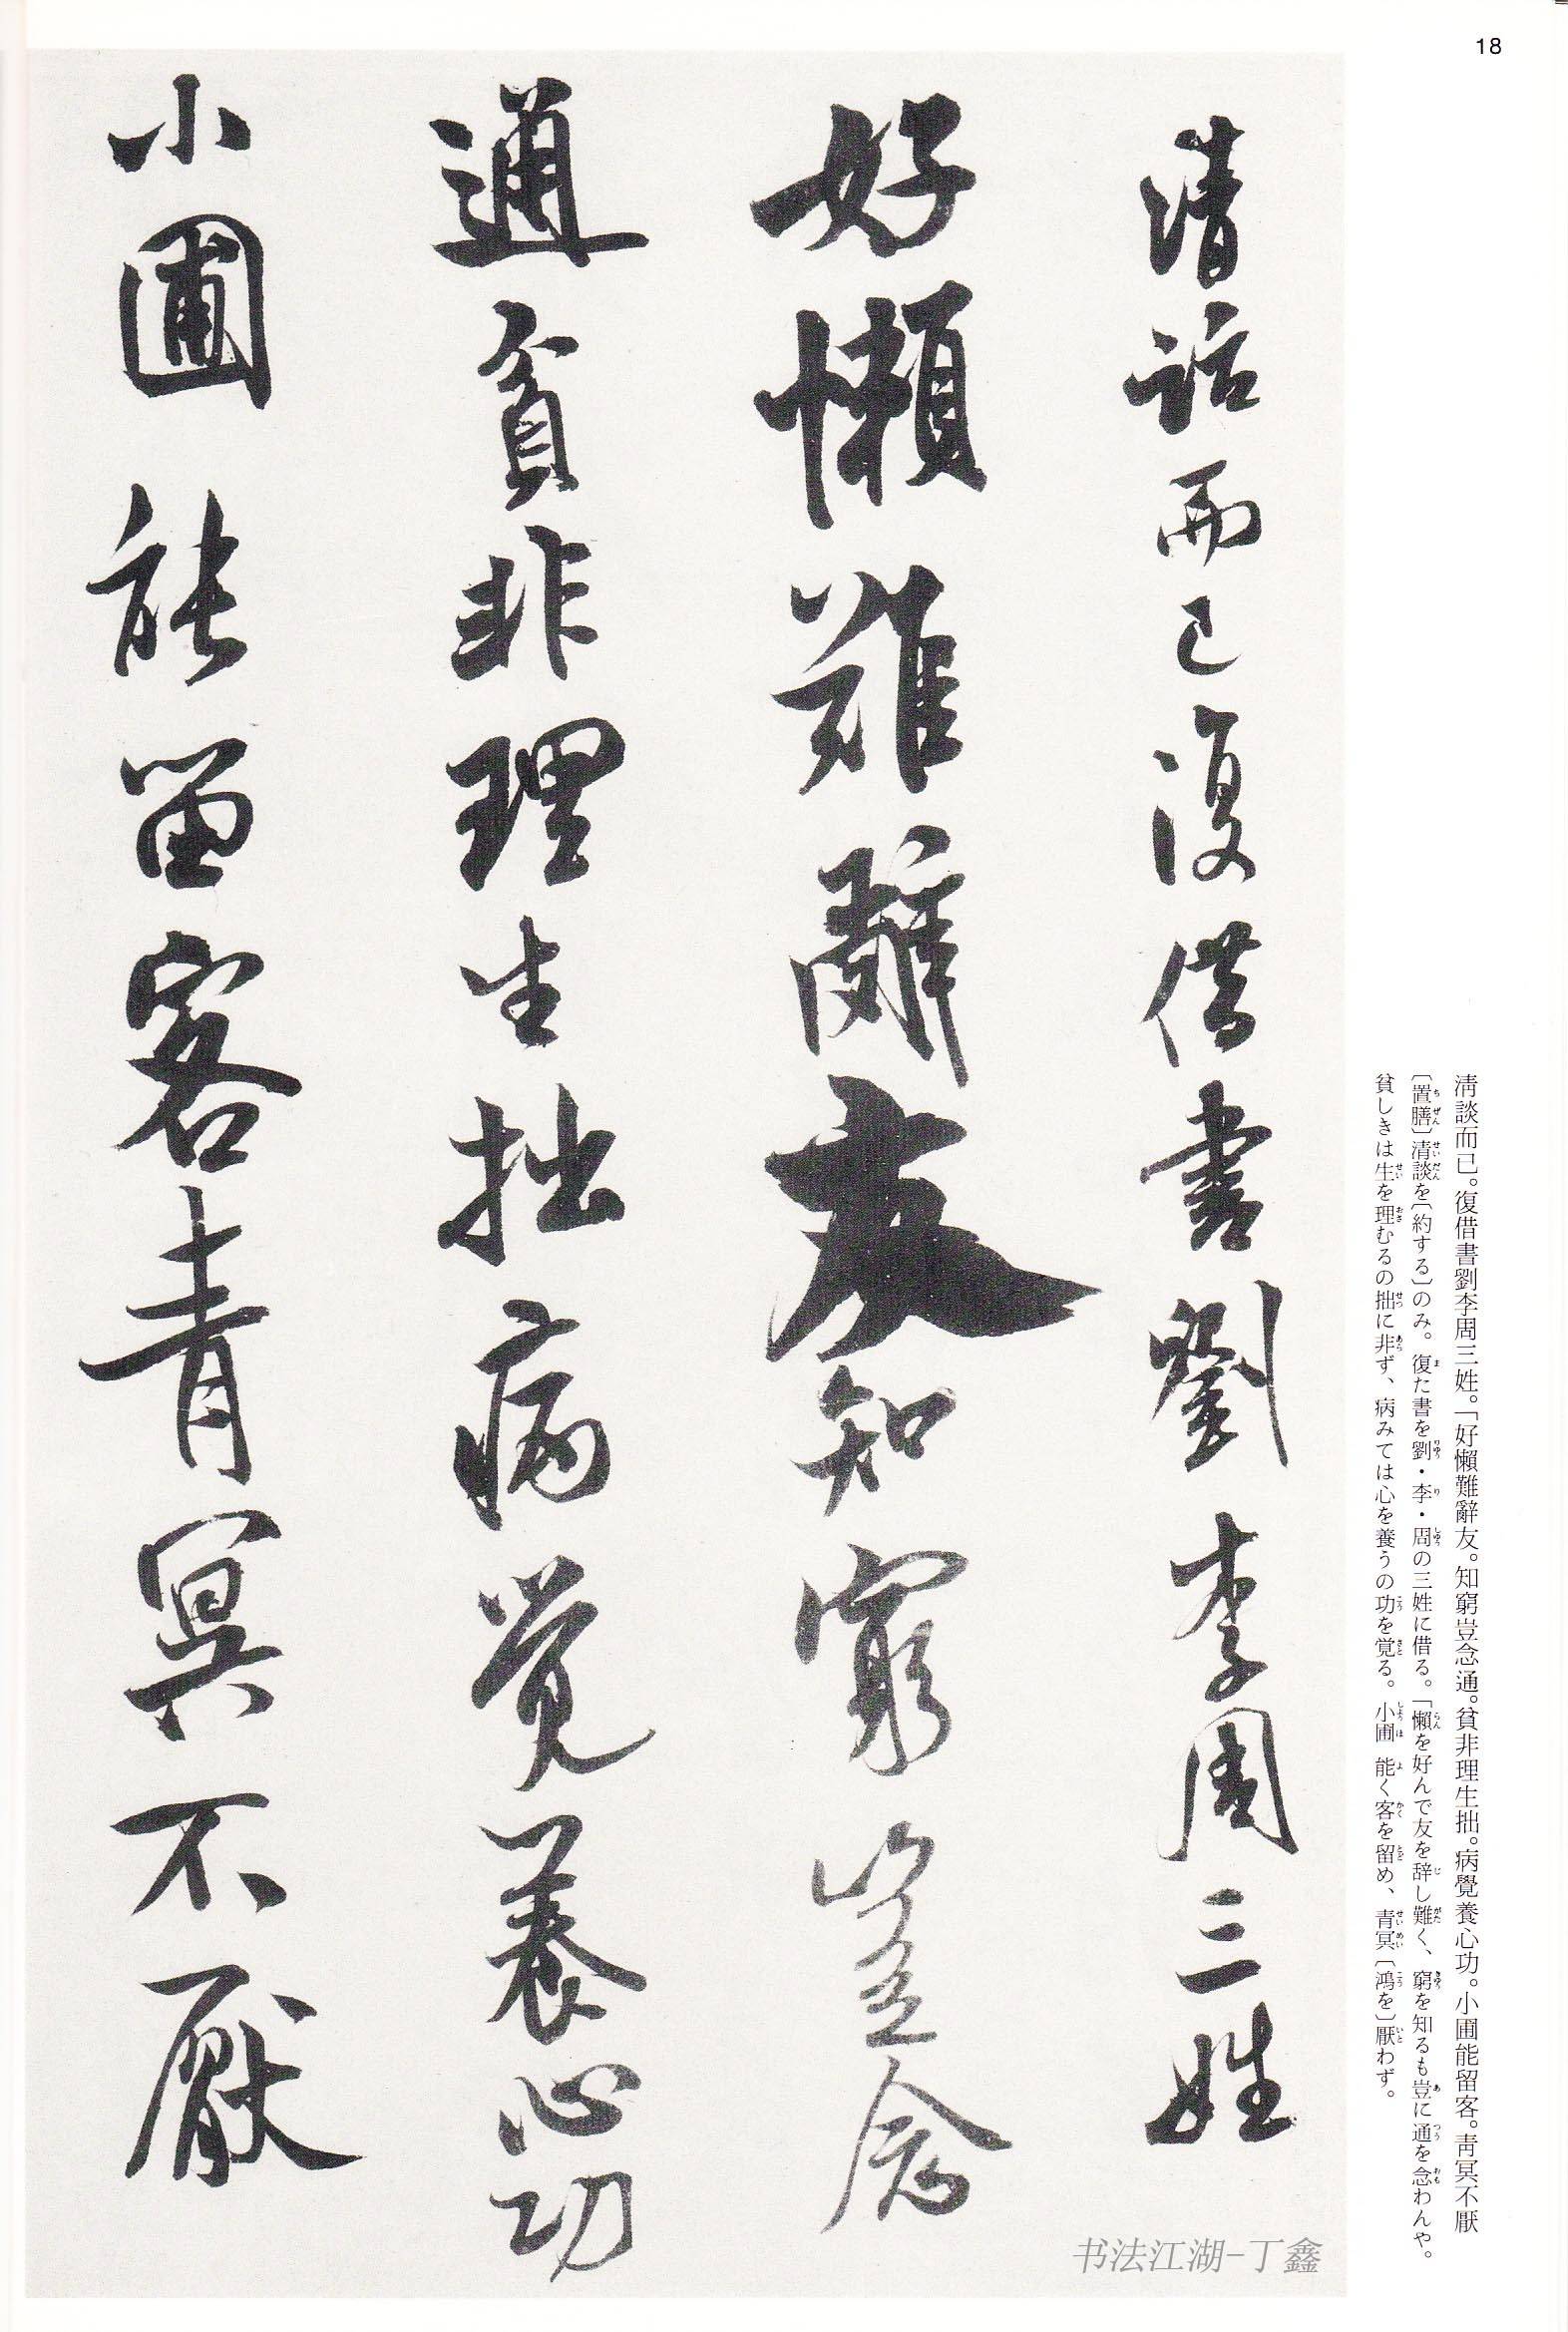 18
淸談而已。復借書劉李周三姓。「好懶難辭友。知窮豈念通。貧非理生拙。病覺養心功。小圃能留客。靑冥不厭
〔置膳〕清談を〔約する〕のみ。復た書を劉・李・周の三姓に借る。「懶を好んで友を辞し難く、窮を知るも豈に通を念わんや。
貧しきは生を理むるの拙に非ず、病みては心を養うの功を覚る。小圃 能く客を留め、青冥〔鴻を〕厭わず。
清話而已復借書劉李周三姓
好懶難辭友知窮豈念
通貧非理生拙病覺養心功
小圃能留客青冥不厭
书法江湖-丁鑫